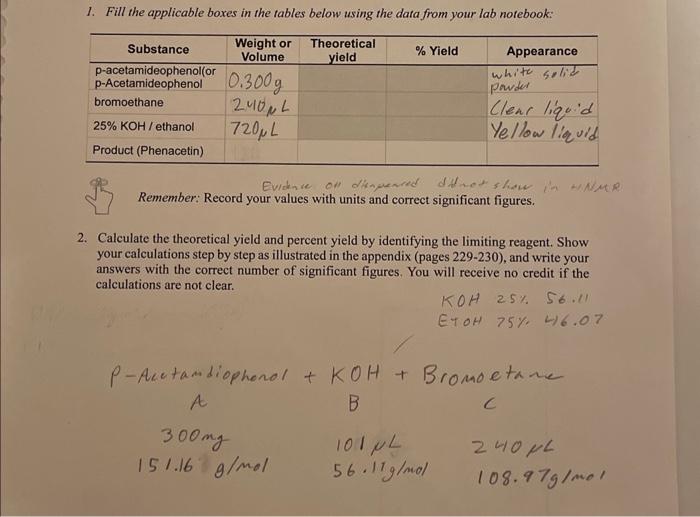 1. Fill the applicable boxes in the tables below using the data from your lab notebook:
Substance Weight or Volume Theoretical yield % Yield Appearance
p-acetamideophenol(or p-Acetamideophenol 0.300g white solid powder
bromoethane 240µL Clear liquid
25% KOH / ethanol 720µL Yellow liquid
Product (Phenacetin)
Evidence OH disapeared did not show in HNMR
Remember: Record your values with units and correct significant figures.
2. Calculate the theoretical yield and percent yield by identifying the limiting reagent. Show
your calculations step by step as illustrated in the appendix (pages 229-230), and write your
answers with the correct number of significant figures. You will receive no credit if the
calculations are not clear.
KOH 25% 56.11
ETOH 75% 46.07
P-Acetamdiophenol + KOH + Bromoetane
A B C
300mg 101µL 240µL
151.16 g/mol 56.11g/mol 108.97g/mol